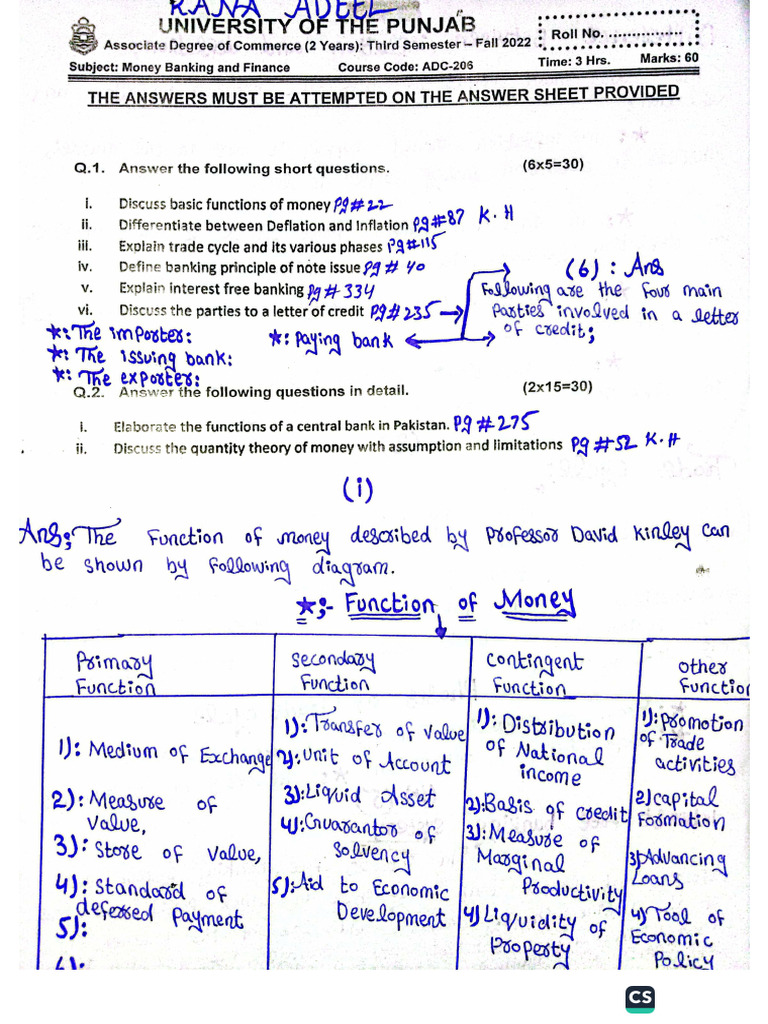 RANA ADEEL
UNIVERSITY OF THE PUNJAB
Associate Degree of Commerce (2 Years): Third Semester – Fall 2022
Roll No. ...............
Subject: Money Banking and Finance Course Code: ADC-206 Time: 3 Hrs. Marks: 60
THE ANSWERS MUST BE ATTEMPTED ON THE ANSWER SHEET PROVIDED
Q.1. Answer the following short questions. (6x5=30)
i. Discuss basic functions of money Pg#22
ii. Differentiate between Deflation and Inflation Pg#87 K.H
iii. Explain trade cycle and its various phases Pg#115
iv. Define banking principle of note issue Pg # 40
v. Explain interest free banking Pg # 334
vi. Discuss the parties to a letter of credit Pg#235
(6) : Ans
Following are the four main
Parties involved in a letter
of credit;
*: The importer: *: Paying bank
*: The issuing bank:
*: The exporter:
Q.2. Answer the following questions in detail. (2x15=30)
i. Elaborate the functions of a central bank in Pakistan. Pg #275
ii. Discuss the quantity theory of money with assumption and limitations Pg #52 K.H
(i)
Ans; The Function of Money described by Professor David Kinley can
be shown by following diagram.
*;- Function of Money
Primary
Function
1): Medium of Exchange
2): Measure of
Value,
3): Store of Value,
4): Standard of
deferred Payment
5):
6):
Secondary
Function
1): Transfer of Value
2): Unit of Account
3): Liquid Asset
4): Guarantor of
Solvency
5): Aid to Economic
Development
Contingent
Function
1): Distribution
of National
income
2): Basis of credit
3): Measure of
Marginal
Productivity
4) Liquidity of
Property
Other
Function
1): Promotion
of Trade
activities
2) Capital
Formation
3) Advancing
Loans
4) Tool of
Economic
Policy
CS